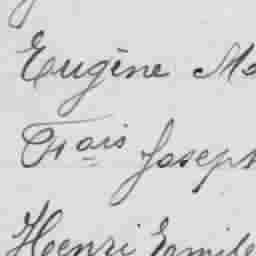 Eugène Ma
Frais Joseph
Henri Emile